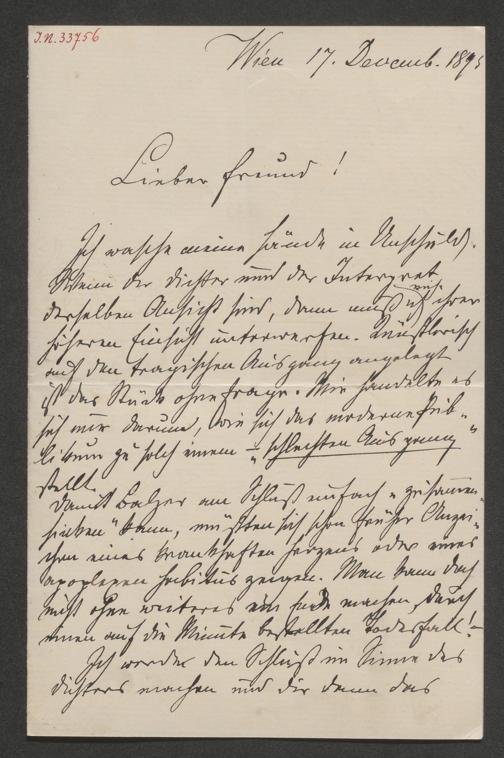 J.N. 33756
Wien 17. Decemb. 1895
Lieber Freund!
Ich wasche meine Hände in Unschuld.
Wenn der Dichter und der Interpret
derselben Ansicht sind, dann muß ich mich ihrer
höheren Einsicht unterwerfen. Künstlerisch
auf den tragischen Ausgang angelegt
ist das Stück ohne Frage. Mir handelte es
sich nur darum, wie sich das moderne Pub-
likum zu solch einem – „schlechten Ausgang"
stellt.
Damit Balzer am Schluß einfach „zusammen-
sinken" kann, müßten sich schon früher Anzei-
chen eines krankhaften Herzens oder eines
apoplexen Habitus zeigen. Man kann doch
nicht ohne weiteres ein Ende machen, durch
einen auf die Minute bestellten Todesfall! –
Ich werde den Schluß im Sinne des
Dichters machen und dir dann das